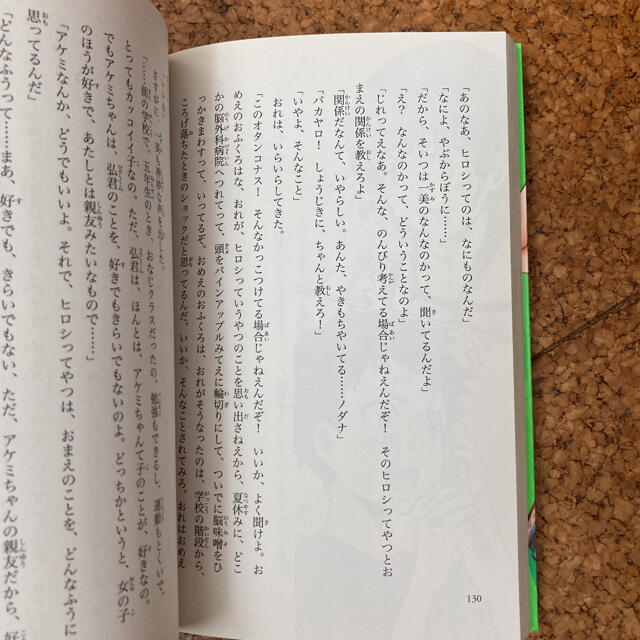 「あのなあ、ヒロシってのは、なにものなんだ」
「なによ、やぶからぼうに……」
「だから、そいつは一美のなんなのかって、聞いてるんだよ」
「え？　なんなのかって、どういうことなのよ
「じれってえなあ。そんな、のんびり考えてる場合じゃねえんだぞ！　そのヒロシってやつとお
まえの関係を教えろよ」
「関係だなんて、いやらしい。あんた、やきもちやいてる……ノダナ」
「バカヤロ！　しょうじきに、ちゃんと教えろ！」
「いやよ、そんなこと」
おれは、いらいらしてきた。
「このオタンコナス！　そんなかっこつけてる場合じゃねえんだぞ！　いいか、よく聞けよ。お
めえのおふくろはな、おれが、ヒロシっていうやつのことを思い出さねえから、夏休みに、どこ
かの脳外科病院へつれてって、頭をパインアップルみてえに輪切りにして、ついでに脳味噌をひ
っかきまわすって、いってるぞ。おめえのおふくろは、おれがそうなったのは、学校の階段から、
ころげ落ちたときのショックだと思ってるんだ。いいか、そんなことされてみろ、おれはおめえ
130
とってもカッコイイ子なの。ただ、弘君は、ほんとは、アケミちゃんて子のことが、好きなの。
でもアケミちゃんは、弘君のことを、好きでもきらいでもないのよ。どっちかというと、女の子
のほうが好きで、あたしとは親友みたいなもので……」
「アケミなんか、どうでもいいよ。それで、ヒロシってやつは、おまえのことを、どんなふうに
思ってるんだ」
「どんなふうって……まあ、好きでも、きらいでもない、ただ、アケミちゃんの親友だから、